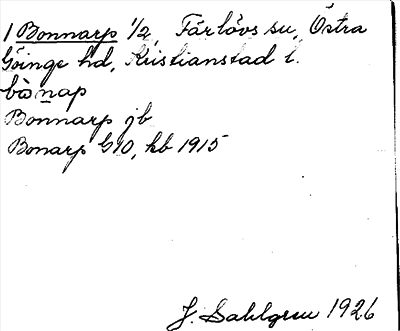 1 Bonnarp 1/2, Färlövs sn, Östra
Göinge hd, Kristianstad l.
bònap
Bonnarp jb
Bonarp G10, kb 1915
J. Sahlgren 1926